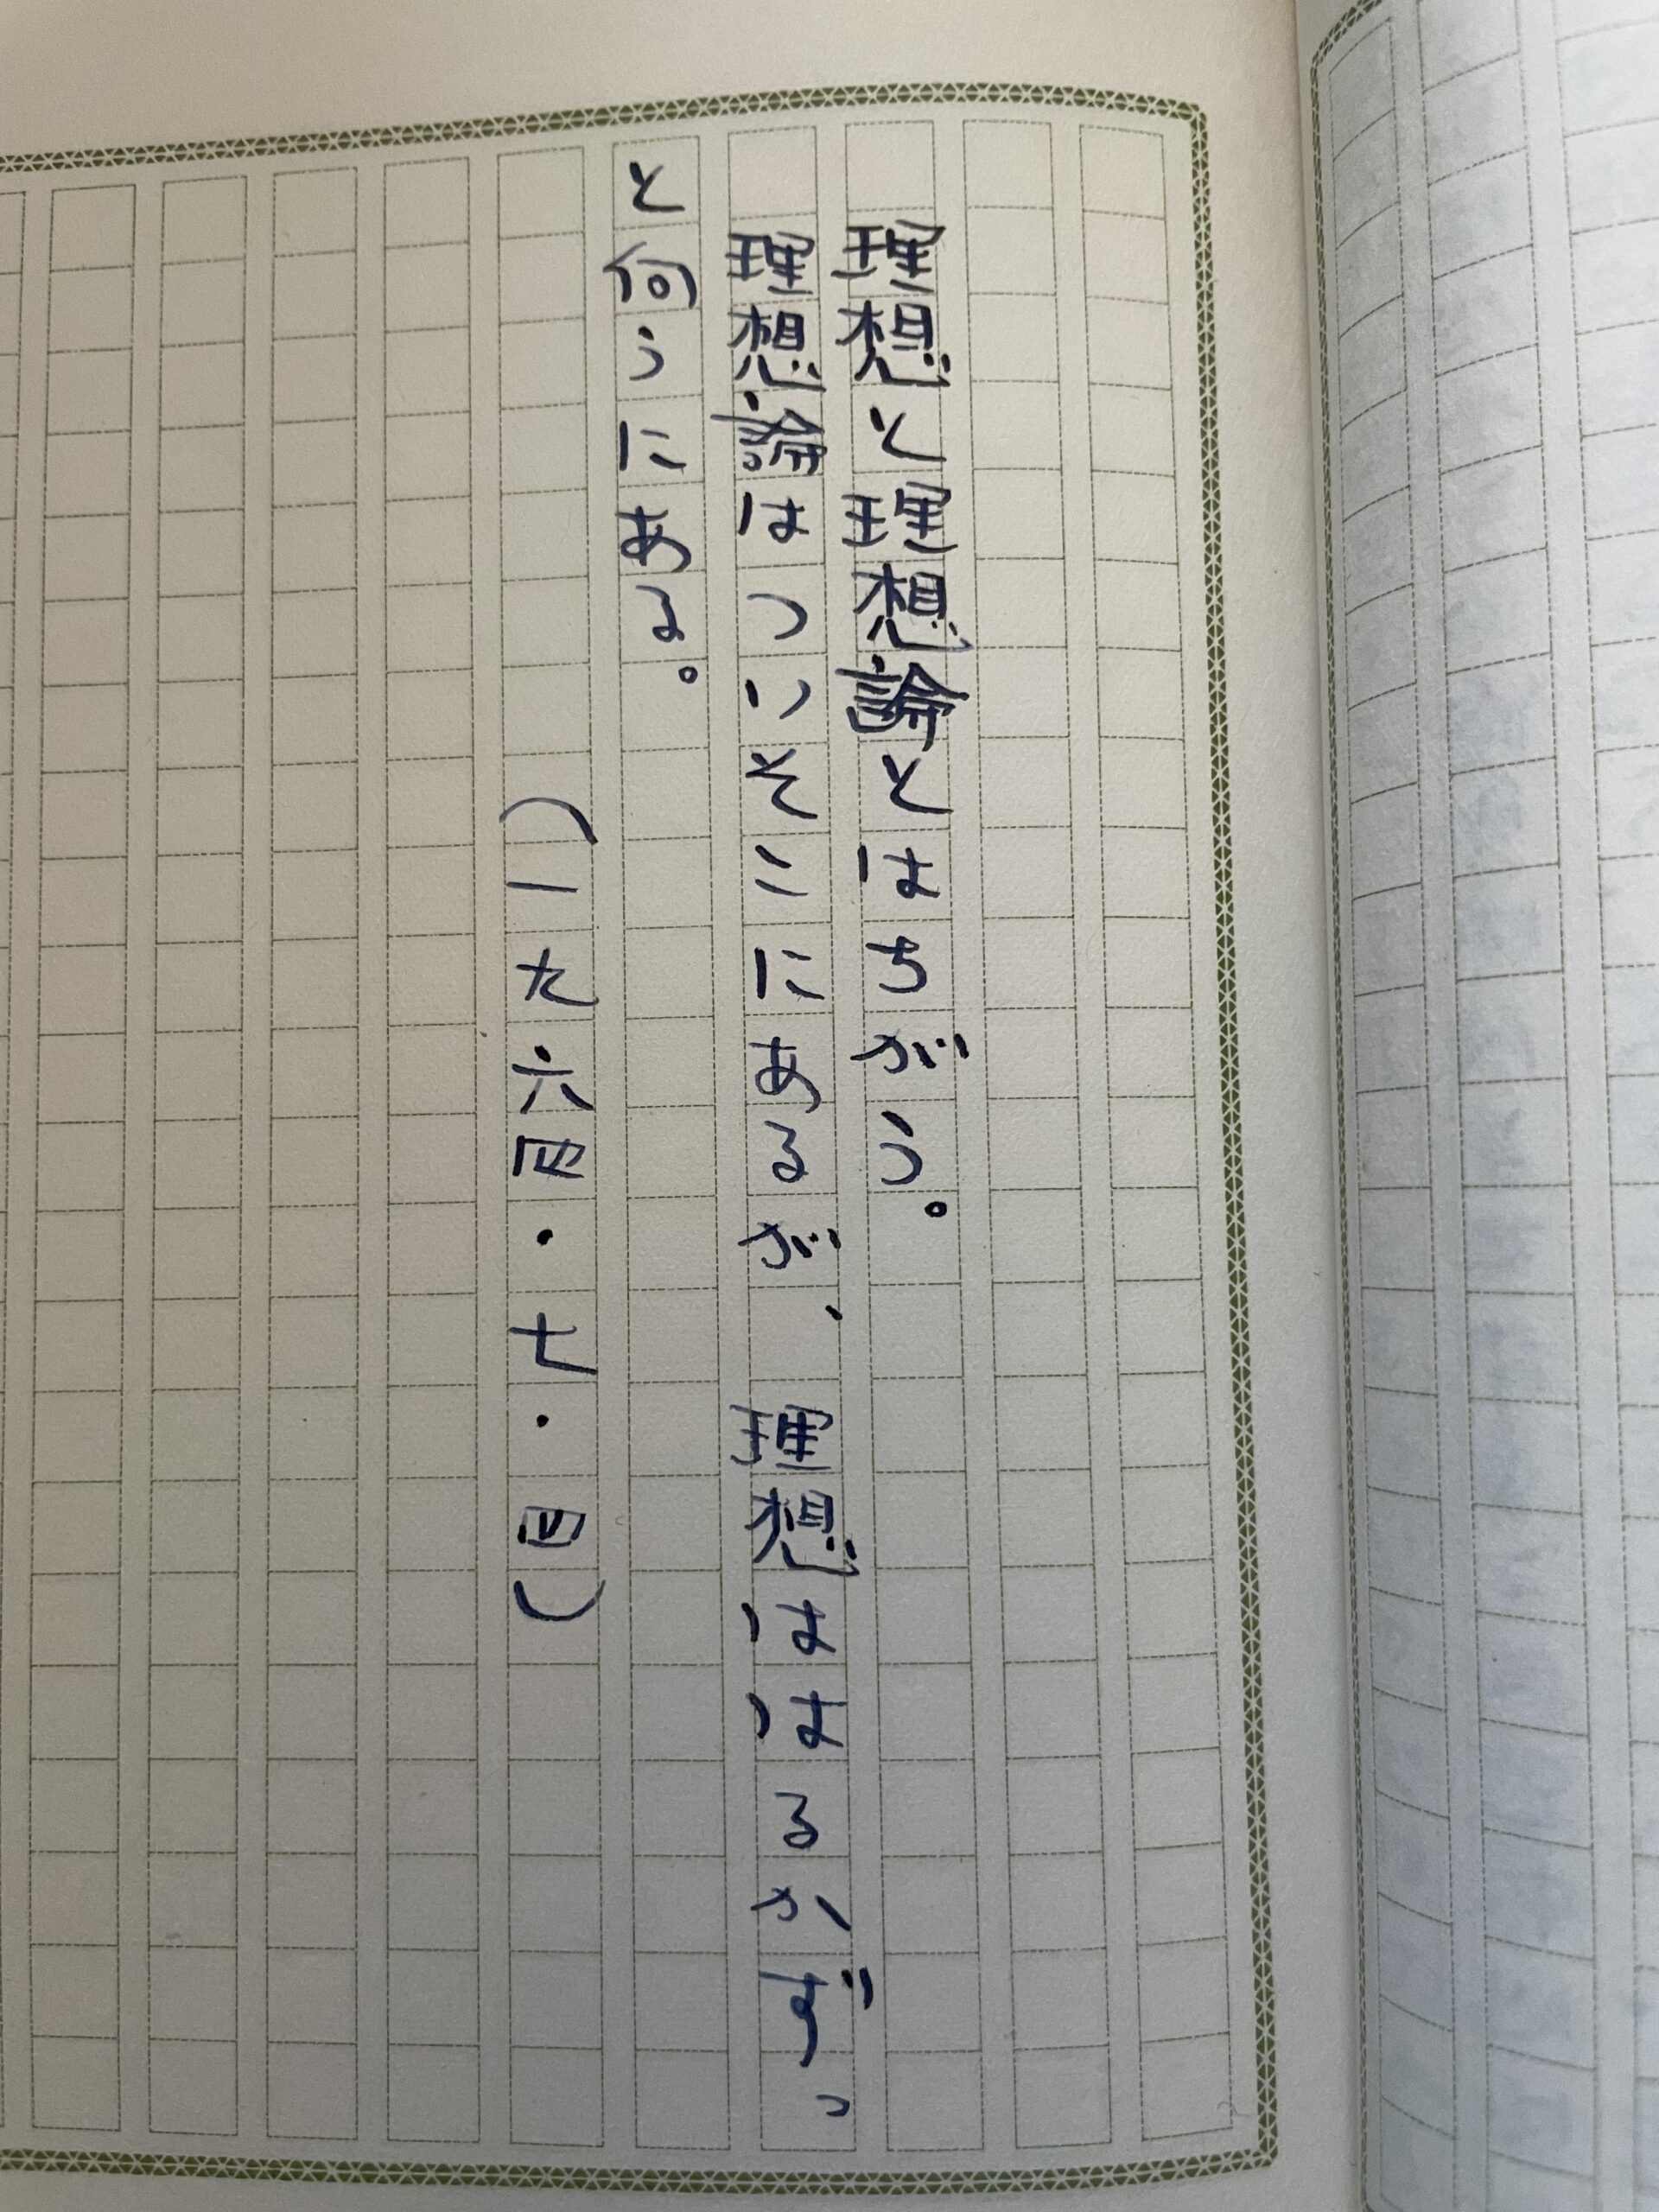 理想と理想論とはちがう。
理想論はついそこにあるが、理想ははるかずっ
と向うにある。
(一九六四・七・四)